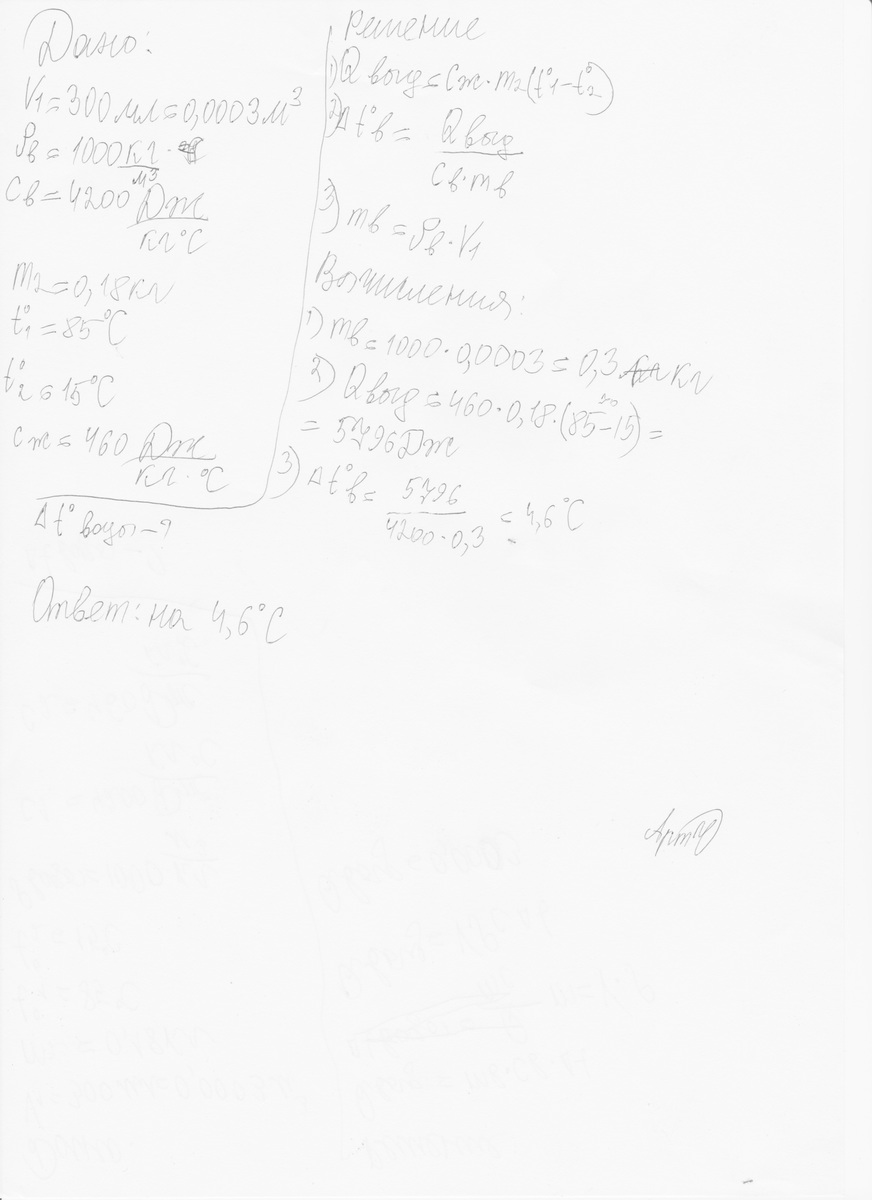 Дано:
V1 = 300 мл = 0,0003 м³
ρв = 1000 кг/м³
Cв = 4200 Дж/кг°C
m2 = 0,18 кг
t°1 = 85°C
t°2 = 15°C
Cж = 460 Дж/кг·°C
Δt° воды - ?
Решение
1) Q выд = Cж · m2 (t°1 - t°2)
2) Δt°в = Q выд / Cв · mв
3) mв = ρв · V1
Вычисления:
1) mв = 1000 · 0,0003 = 0,3 кг
2) Q выд = 460 · 0,18 · (85 - 15) =
= 5796 Дж
3) Δt°в = 5796 / 4200 · 0,3 = 4,6°C
Ответ: на 4,6°C